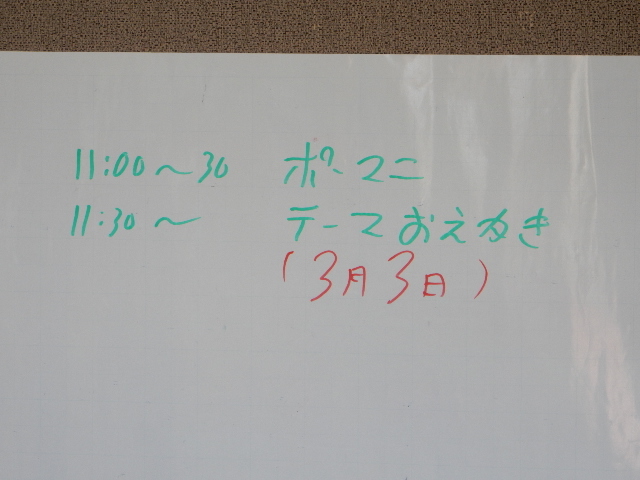 11:00〜30 ポーマニ
11:30〜 テーマおえかき
(3月3日)